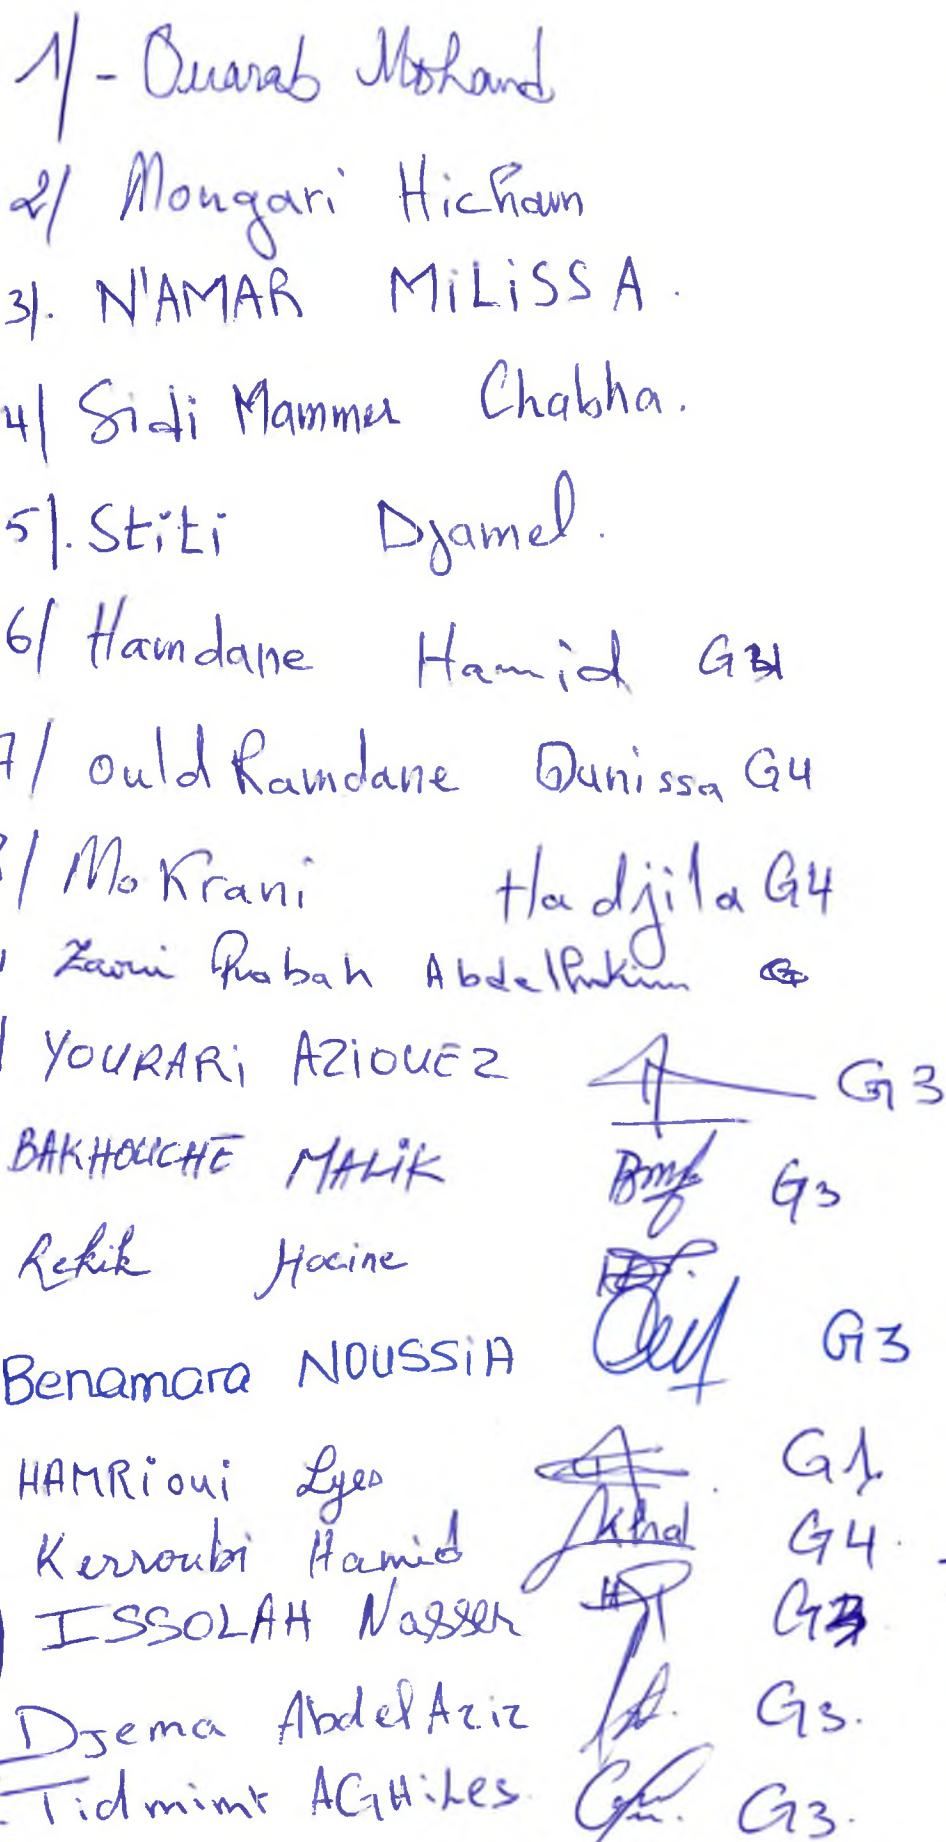 1/- Ouarab Mohand
2/ Mougari Hicham
3/. N'AMAR MiLiSSA.
4/ Sidi Mammer Chabha.
5/. Stiti Djamel.
6/ Hamdane Hamid
7/ ould Ramdane Ounissa G4
/ MoKrani Hadjila G4
Rabah
YOURARi AZIOUEZ G3
BAKHOUCHE MALiK G3
Rekik Hocine
Benamara NOUSSiA G3
HAMRioui Lyes G1.
Kerroubi Hamid G4.
ISSOLAH Nasser
Djema AbdelAziz G3.
Tidmimt AGHiLes G3.